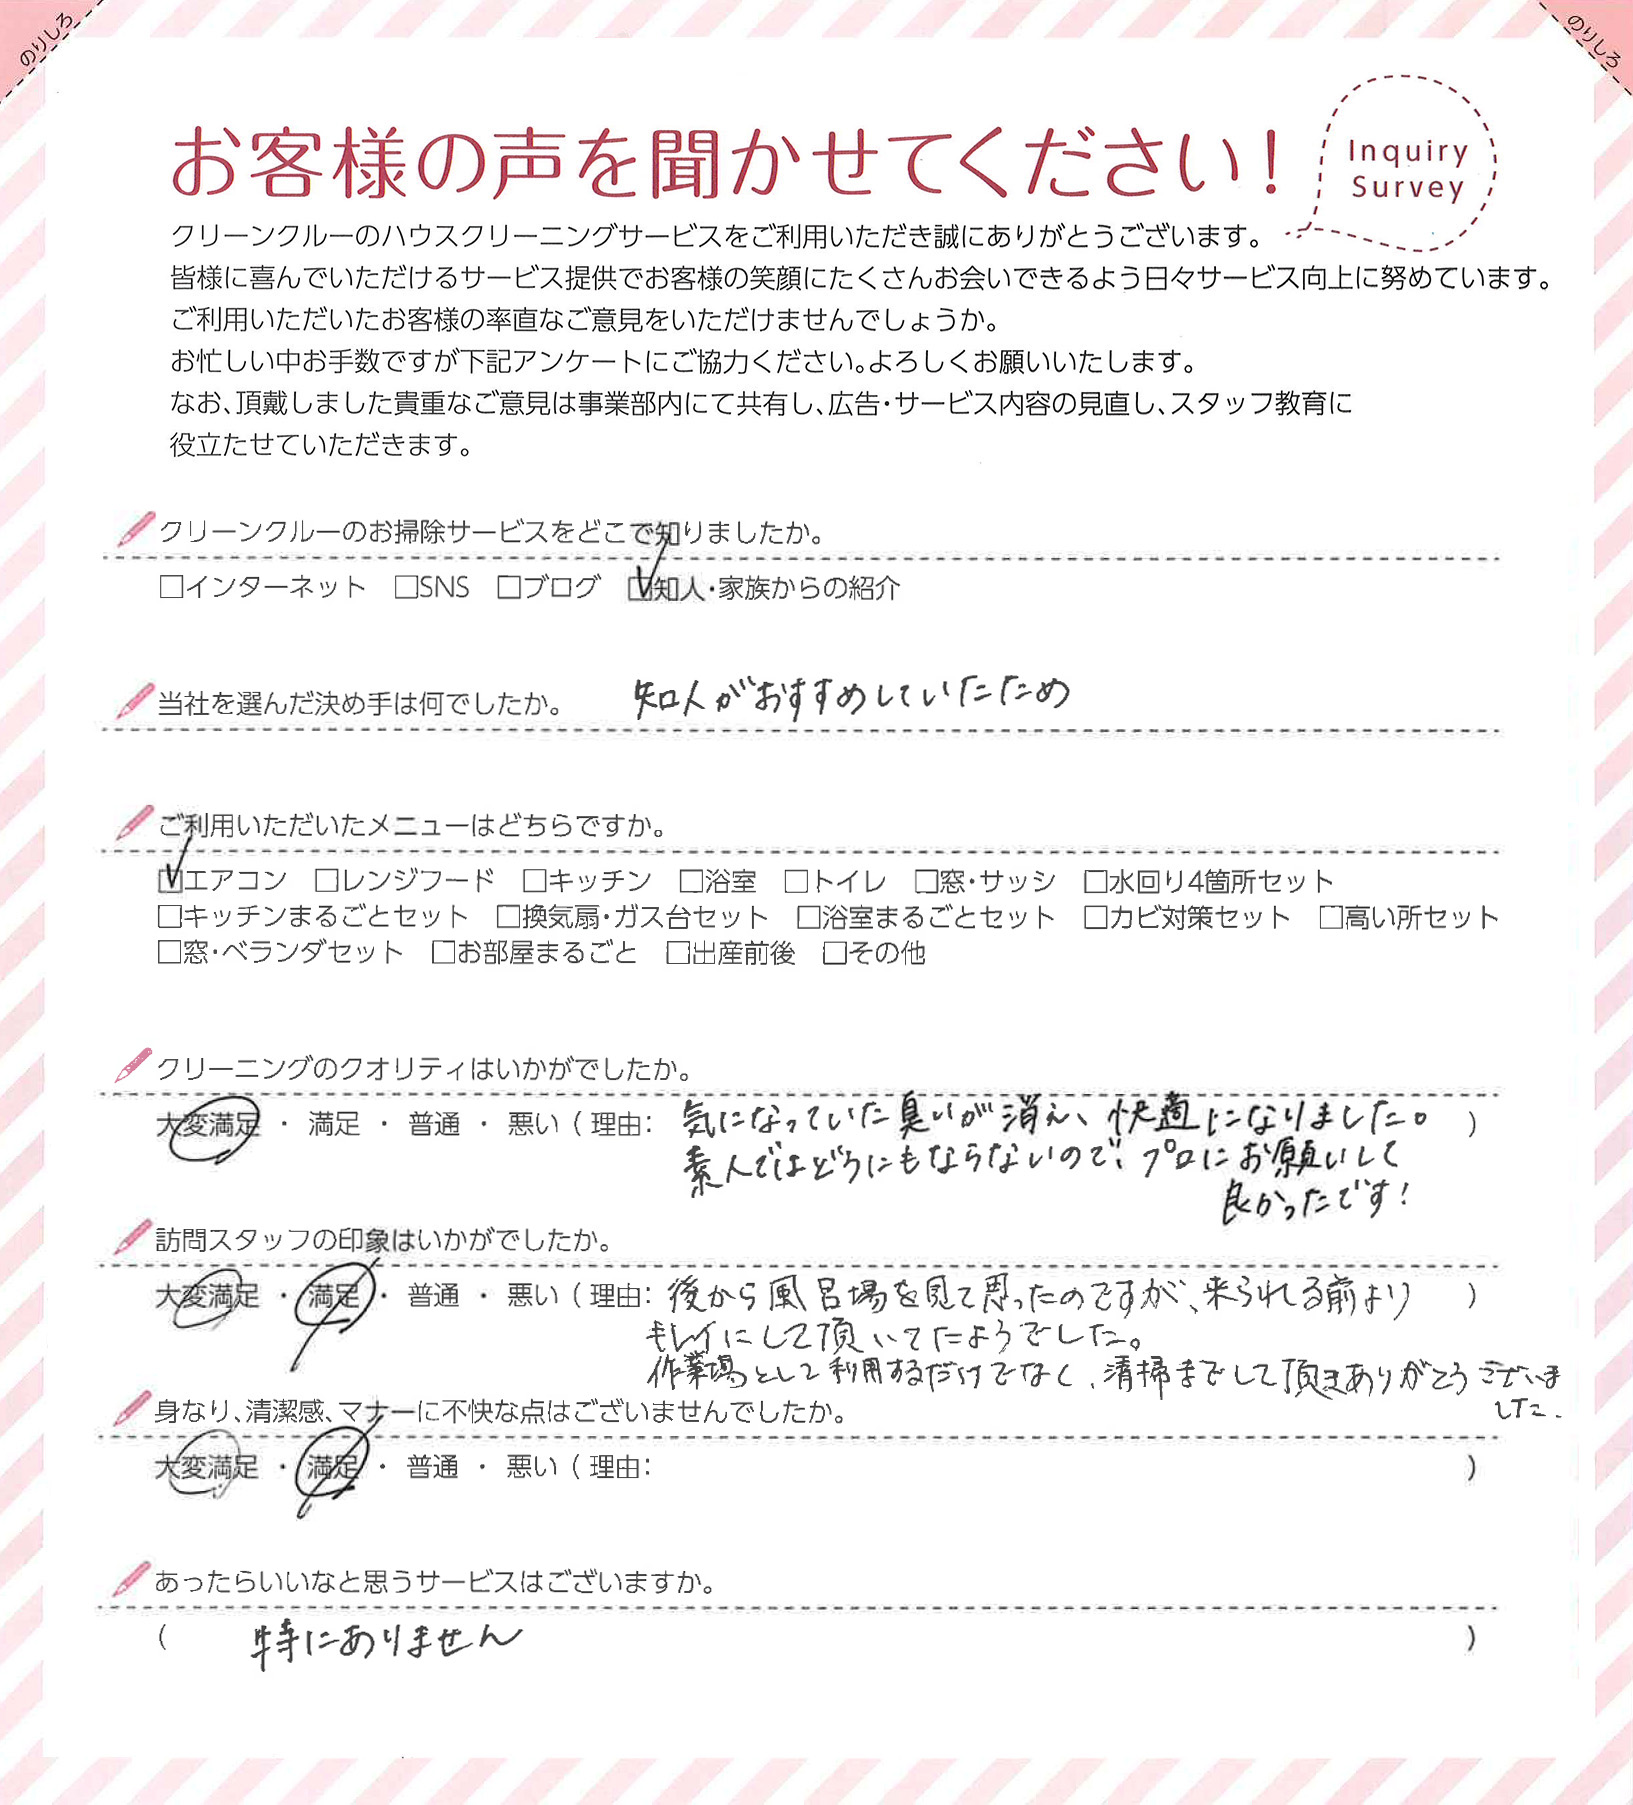 のりしろ
のりしろ
お客様の声を聞かせてください！
Inquiry
Survey
クリーンクルーのハウスクリーニングサービスをご利用いただき誠にありがとうございます。
皆様に喜んでいただけるサービス提供でお客様の笑顔にたくさんお会いできるよう日々サービス向上に努めています。
ご利用いただいたお客様の率直なご意見をいただけませんでしょうか。
お忙しい中お手数ですが下記アンケートにご協力ください。よろしくお願いいたします。
なお、頂戴しました貴重なご意見は事業部内にて共有し、広告・サービス内容の見直し、スタッフ教育に
役立たせていただきます。
クリーンクルーのお掃除サービスをどこで知りましたか。
□インターネット □SNS □ブログ ☑知人・家族からの紹介
当社を選んだ決め手は何でしたか。 知人がおすすめしていたため
ご利用いただいたメニューはどちらですか。
☑エアコン □レンジフード □キッチン □浴室 □トイレ □窓・サッシ □水回り4箇所セット
□キッチンまるごとセット □換気扇・ガス台セット □浴室まるごとセット □カビ対策セット □高い所セット
□窓・ベランダセット □お部屋まるごと □出産前後 □その他
クリーニングのクオリティはいかがでしたか。
大変満足 ・ 満足 ・ 普通 ・ 悪い ( 理由: 気になっていた臭いが消え、快適になりました。 )
素人ではどうにもならないので、プロにお願いして
良かったです!
訪問スタッフの印象はいかがでしたか。
大変満足 ・ 満足 ・ 普通 ・ 悪い ( 理由: 後から風呂場を見て思ったのですが、来られる前より )
キレイにして頂いてたようでした。
作業場として利用するだけでなく、清掃までして頂きありがとうございま
した.
身なり、清潔感、マナーに不快な点はございませんでしたか。
大変満足 ・ 満足 ・ 普通 ・ 悪い ( 理由: )
あったらいいなと思うサービスはございますか。
( 特にありません )